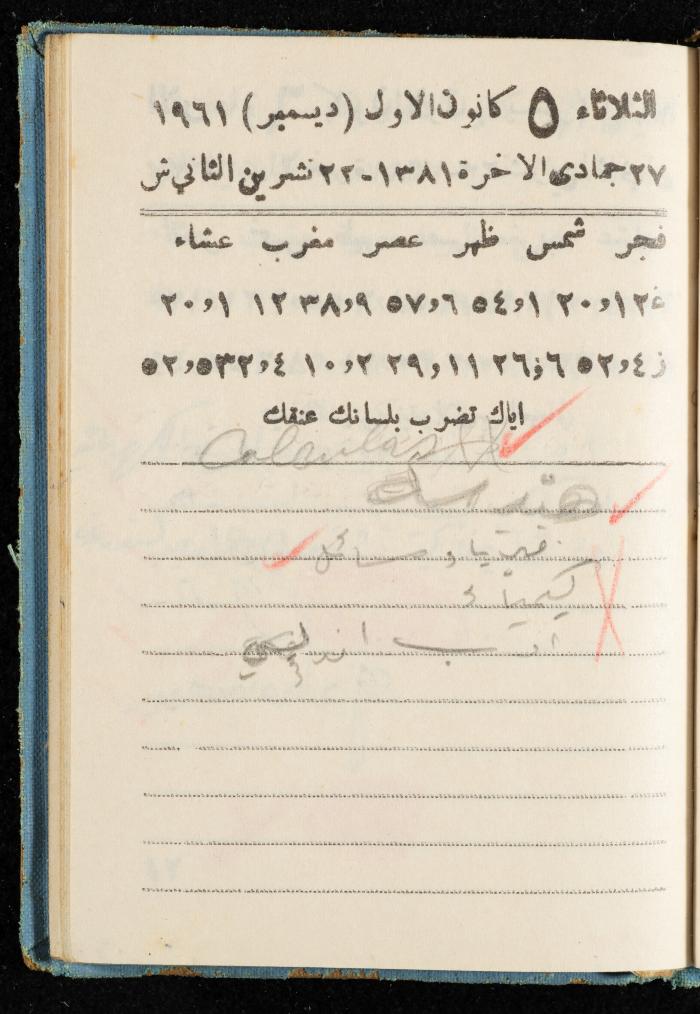 الثلاثاء ٥ كانون الاول (ديسمبر) ١٩٦١
٢٧ جمادى الاخرة ١٣٨١-٢٢ تشرين الثاني ش
فجر شمس ظهر عصر مغرب عشاء
غ ١٢و٢٠ ١و٥٤ ٦و٥٧ ٩و٣٨ ١٢ ١و٢٠
ز ٤و٥٢ ٦و٢٦ ١١و٢٩ ٢و١٠ ٤و٣٢ ٥و٥٢
اياك تضرب بلسانك عنقك
Calculas
فيزيا و مسائل
كيمياء
ادب اندلسي